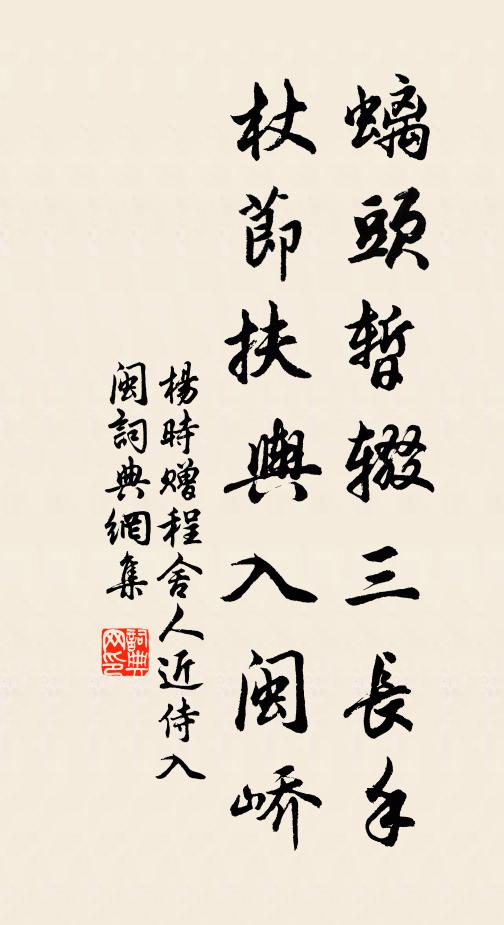 螭頭暫辍三長手
杖節扶輿入閩嶠
楊時贈程舍人近侍入
閩詞典網集
詞典
网印